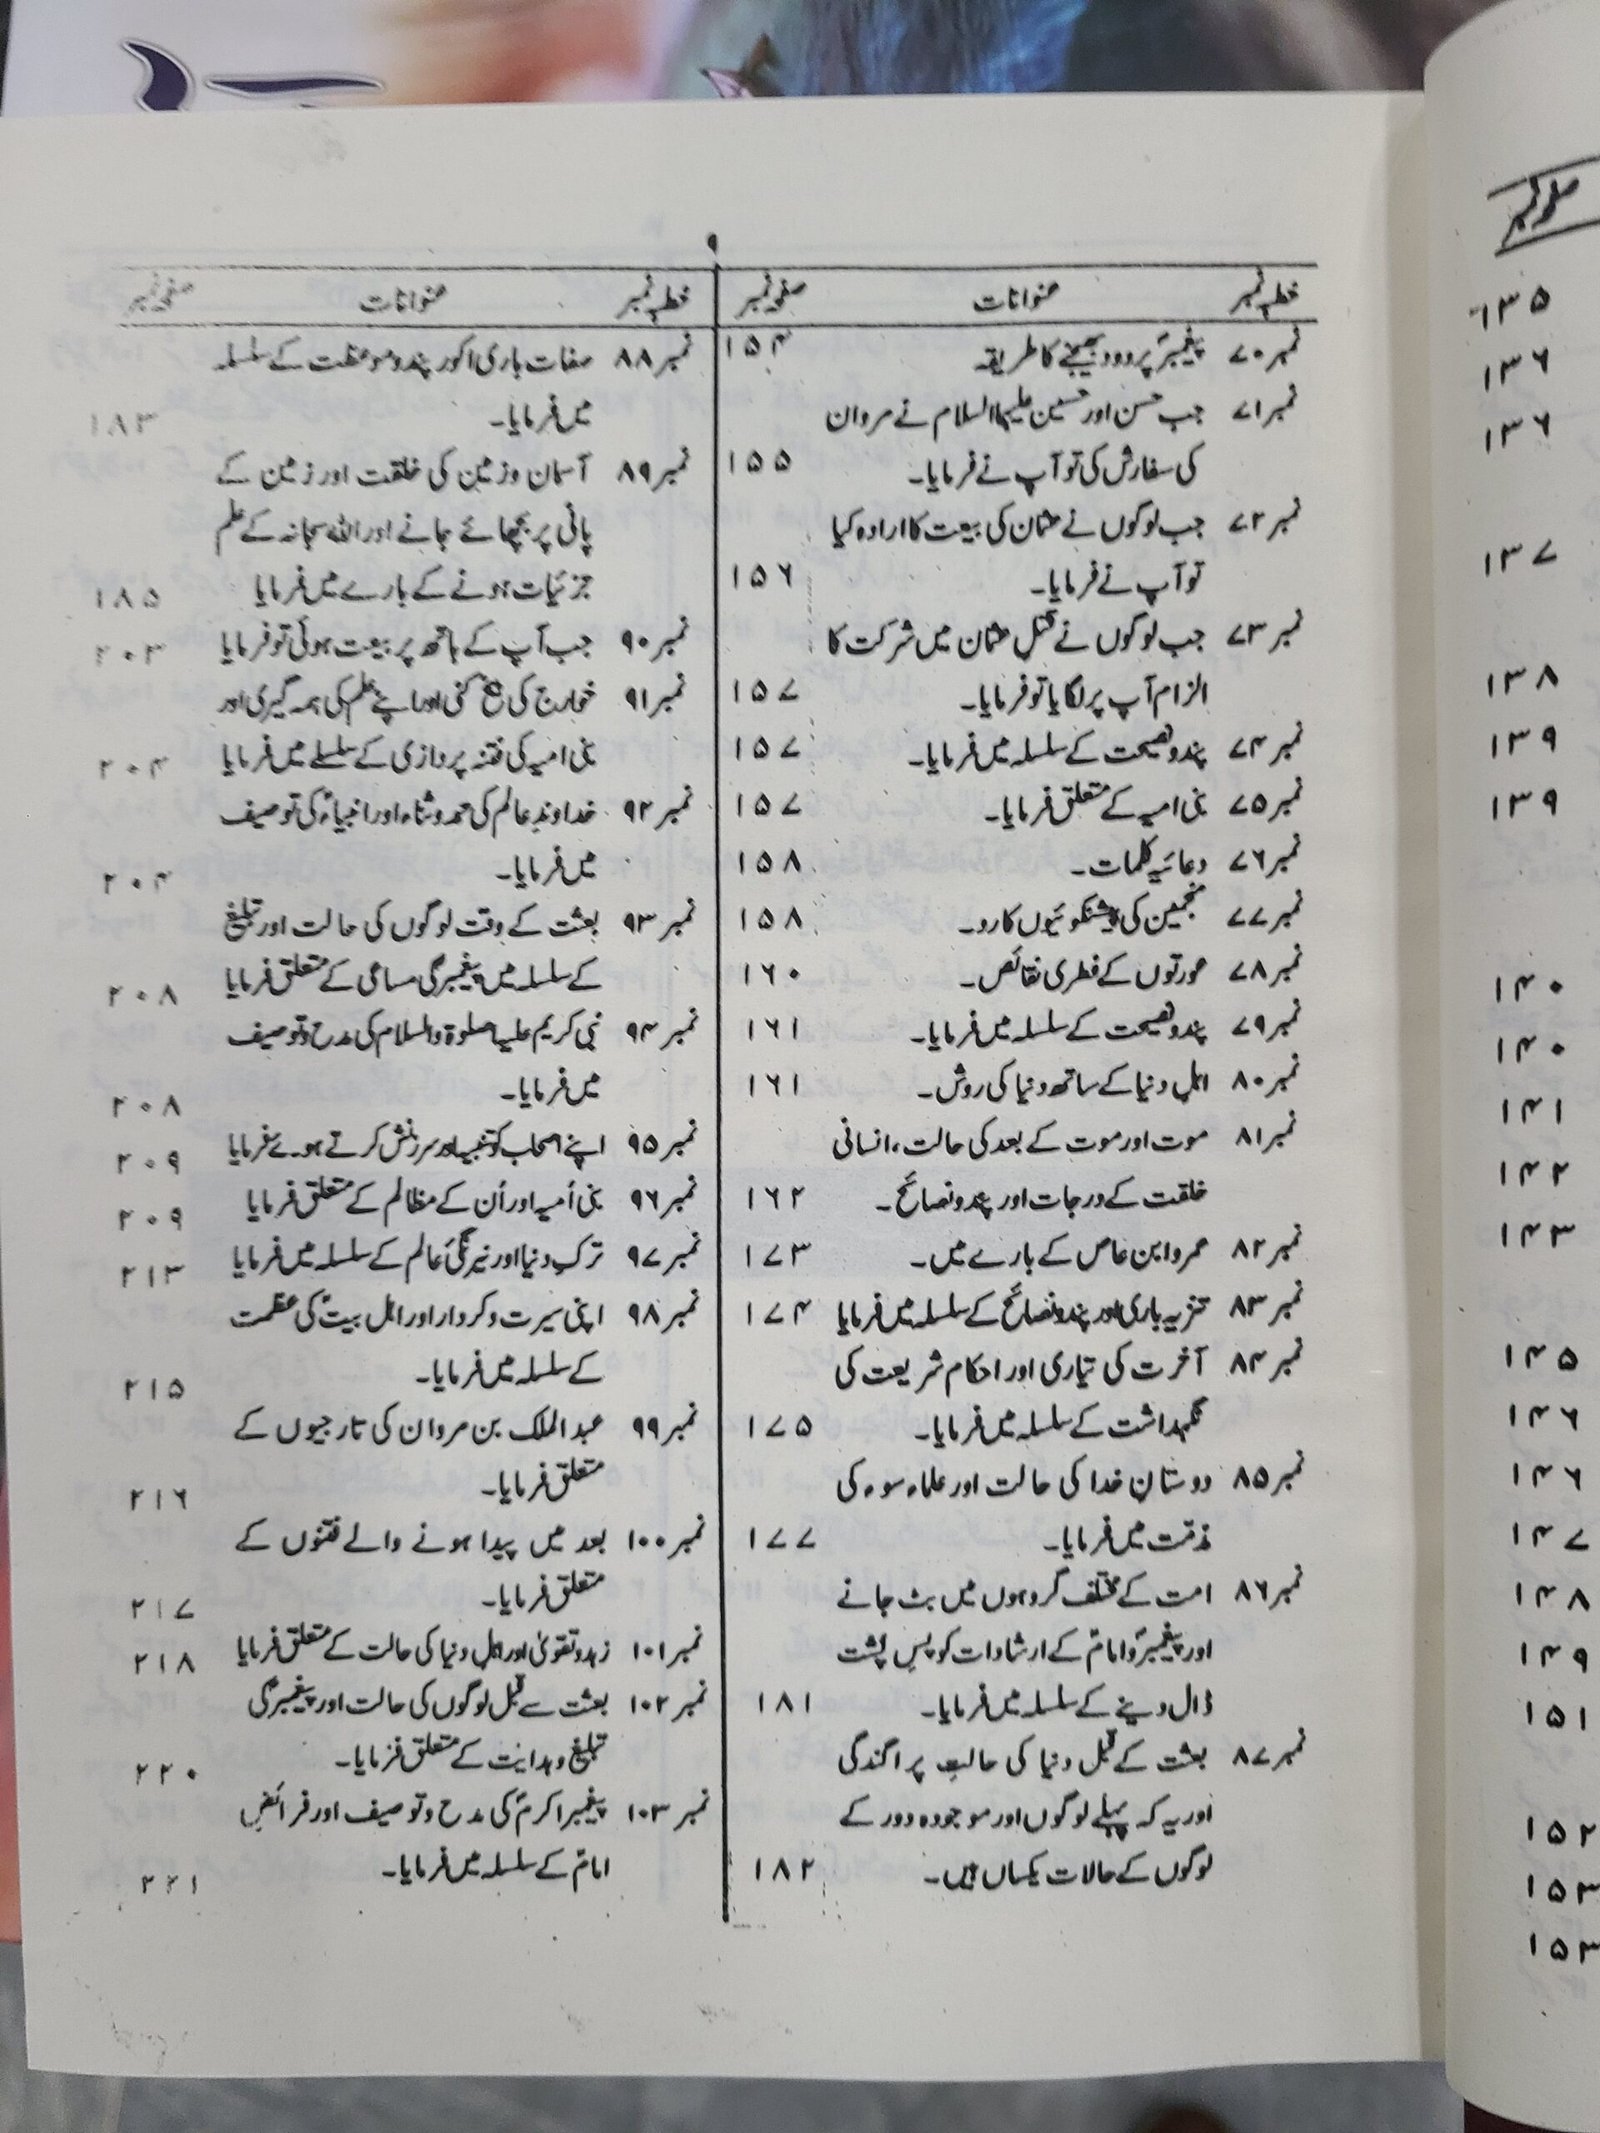 ۹
خطبہ نمبر عنوانات صفحہ نمبر
نمبر ۷۰ پیغمبرؐ پر درود بھیجنے کا طریقہ ۱۵۴
نمبر ۷۱ جب حسن اور حسین علیہما السلام نے مروان
کی سفارش کی تو آپ نے فرمایا۔ ۱۵۵
نمبر ۷۲ جب لوگوں نے عثمان کی بیعت کا ارادہ کیا
تو آپ نے فرمایا۔ ۱۵۶
نمبر ۷۳ جب لوگوں نے قتلِ عثمان میں شرکت کا
الزام آپ پر لگایا تو فرمایا۔ ۱۵۷
نمبر ۷۴ پند و نصیحت کے سلسلہ میں فرمایا۔ ۱۵۷
نمبر ۷۵ بنی امیہ کے متعلق فرمایا۔ ۱۵۷
نمبر ۷۶ دعائیہ کلمات۔ ۱۵۸
نمبر ۷۷ منجمین کی پیشنگوئیوں کا رد۔ ۱۵۸
نمبر ۷۸ عورتوں کے فطری نقائص۔ ۱۶۰
نمبر ۷۹ پند و نصیحت کے سلسلہ میں فرمایا۔ ۱۶۱
نمبر ۸۰ اہلِ دنیا کے ساتھ دنیا کی روش۔ ۱۶۱
نمبر ۸۱ موت اور موت کے بعد کی حالت، انسانی
خلقت کے درجات اور پند و نصائح۔ ۱۶۲
نمبر ۸۲ عمرو ابن عاص کے بارے میں۔ ۱۷۳
نمبر ۸۳ تنزیہ باری اور پند و نصائح کے سلسلہ میں فرمایا ۱۷۴
نمبر ۸۴ آخرت کی تیاری اور احکام شریعت کی
نگہداشت کے سلسلہ میں فرمایا۔ ۱۷۵
نمبر ۸۵ دوستانِ خدا کی حالت اور علماء سوء کی
مذمّت میں فرمایا۔ ۱۷۷
نمبر ۸۶ امت کے مختلف گروہوں میں بٹ جانے
اور پیغمبرؐ و امامؑ کے ارشادات کو پسِ پشت
ڈال دینے کے سلسلہ میں فرمایا۔ ۱۸۱
نمبر ۸۷ بعثت کے قبل دنیا کی حالتِ پراگندگی
اور یہ کہ پہلے لوگوں اور موجودہ دور کے
لوگوں کے حالات یکساں ہیں۔ ۱۸۲
خطبہ نمبر عنوانات صفحہ نمبر
نمبر ۸۸ صفات باری اور پند و موعظت کے سلسلہ
میں فرمایا۔ ۱۸۳
نمبر ۸۹ آسمان و زمین کی خلقت اور زمین کے
پانی پر بچھائے جانے اور اللہ سبحانہ کے علم
جزئیات ہونے کے بارے میں فرمایا ۱۸۵
نمبر ۹۰ جب آپ کے ہاتھ پر بیعت ہوئی تو فرمایا ۲۰۳
نمبر ۹۱ خوارج کی بیخ کنی اور اپنے علم کی ہمہ گیری اور
بنی امیہ کی فتنہ پردازی کے سلسلے میں فرمایا ۲۰۴
نمبر ۹۲ خداوندِ عالم کی حمد و ثناء اور انبیاءؑ کی توصیف
میں فرمایا۔ ۲۰۴
نمبر ۹۳ بعثت کے وقت لوگوں کی حالت اور تبلیغ
کے سلسلہ میں پیغمبرؐ کی مساعی کے متعلق فرمایا ۲۰۸
نمبر ۹۴ نبی کریم علیہ الصلوۃ والسلام کی مدح و توصیف
میں فرمایا۔ ۲۰۸
نمبر ۹۵ اپنے اصحاب کو تنبیہ اور سرزنش کرتے ہوئے فرمایا ۲۰۹
نمبر ۹۶ بنی اُمیہ اور اُن کے مظالم کے متعلق فرمایا ۲۰۹
نمبر ۹۷ ترکِ دنیا اور نیرنگیٔ عالم کے سلسلہ میں فرمایا ۲۱۳
نمبر ۹۸ اپنی سیرت و کردار اور اہل بیتؑ کی عظمت
کے سلسلہ میں فرمایا۔ ۲۱۵
نمبر ۹۹ عبد الملک بن مروان کی تارجیوں کے
متعلق فرمایا۔ ۲۱۶
نمبر ۱۰۰ بعد میں پیدا ہونے والے فتنوں کے
متعلق فرمایا۔ ۲۱۷
نمبر ۱۰۱ زہد و تقویٰ اور اہلِ دنیا کی حالت کے متعلق فرمایا ۲۱۸
نمبر ۱۰۲ بعثت سے قبل لوگوں کی حالت اور پیغمبرؐ کی
تبلیغ و ہدایت کے متعلق فرمایا۔ ۲۲۰
نمبر ۱۰۳ پیغمبر اکرمؐ کی مدح و توصیف اور فرائضِ
امامؑ کے سلسلہ میں فرمایا۔ ۲۲۱
صفحہ نمبر
۱۳۵
۱۳۶
۱۳۶
۱۳۷
۱۳۸
۱۳۹
۱۳۹
۱۴۰
۱۴۰
۱۴۱
۱۴۲
۱۴۳
۱۴۵
۱۴۶
۱۴۶
۱۴۷
۱۴۸
۱۴۹
۱۵۱
۱۵۲
۱۵۳
۱۵۳